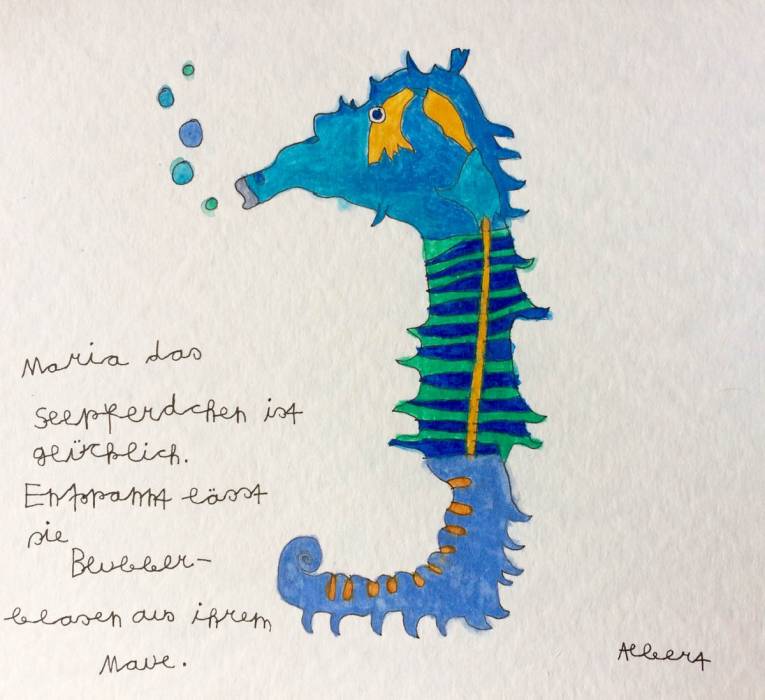 Maria das
Seepferdchen ist
glücklich.
Entspannt lässt
sie
Blubber-
blasen aus ihrem
Maue.
Albert